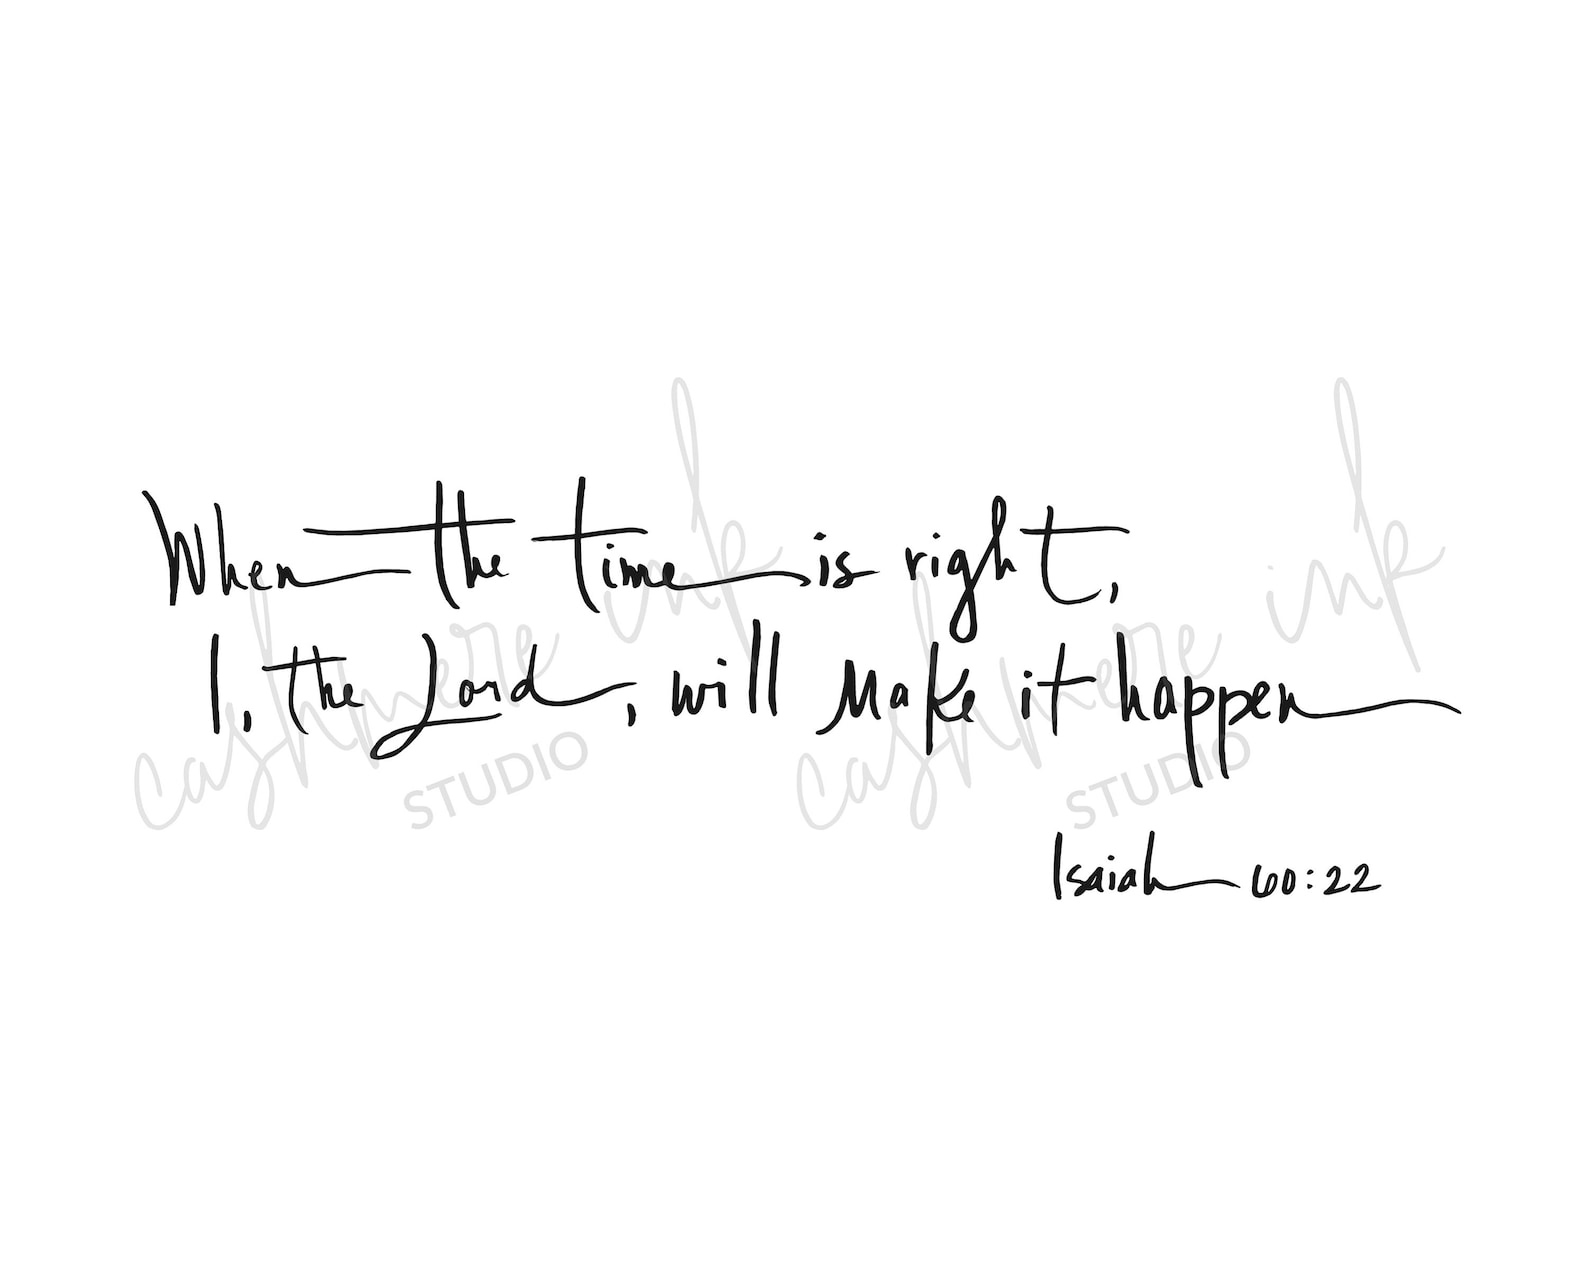 When the time is right,
I, the Lord, will make it happen
Isaiah 60:22
cashmere ink
STUDIO
cashmere ink
STUDIO